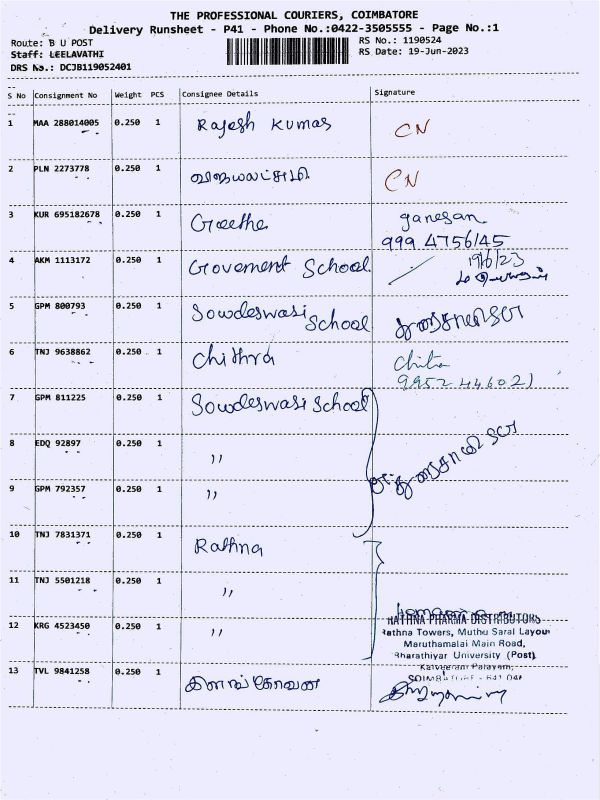 THE PROFESSIONAL COURIERS, COIMBATORE
Delivery Runsheet - P41 - Phone No.:0422-3505555 - Page No.:1
Route: B U POST RS No.: 1190524
Staff: LEELAVATHI RS Date: 19-Jun-2023
DRS No.: DCJB119052401
S No Consignment No Weight PCS Consignee Details Signature
1 MAA 288014005 0.250 1 Rajesh Kumar CN
2 PLN 2273778 0.250 1 விஜயலட்சுமி CN
3 KUR 695182678 0.250 1 Geetha ganesan
999 4756145
4 AKM 1113172 0.250 1 Goverment School 19/6/23
5 GPM 800793 0.250 1 Sowdeswari School
6 TNJ 9638862 0.250 1 Chithra Chitra
9952446021
7 GPM 811225 0.250 1 Sowdeswari School
8 EDQ 92897 0.250 1 ,,
9 GPM 792357 0.250 1 ,,
10 TNJ 7831371 0.250 1 Rathna
11 TNJ 5501218 0.250 1 ,,
12 KRG 4523450 0.250 1 ,,
RATHNA PHARMA DISTRIBUTORS
Rathna Towers, Muthu Saral Layout
Maruthamalai Main Road,
Bharathiyar University (Post)
Kalveeram Palayam,
COIMBATORE - 641 046
13 TVL 9841258 0.250 1 இளங்கோவன்